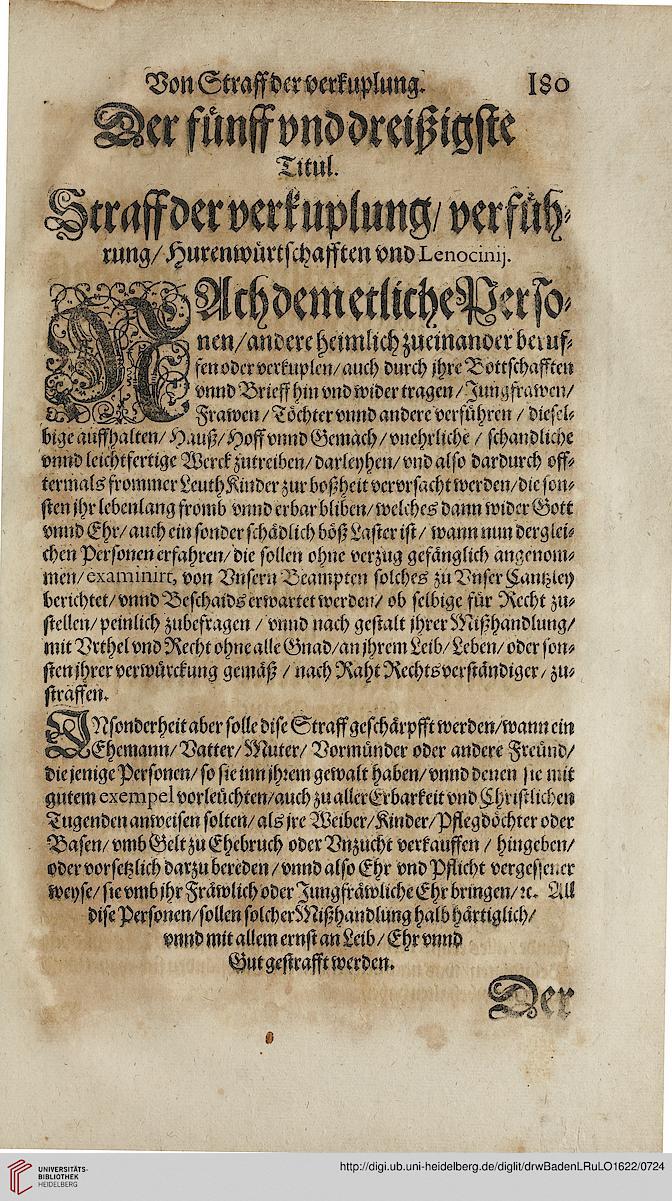 Von Straff der verkuplung. 180
Der fünff vnd dreißigste
Titul.
Straff der verkuplung/ verfüh-
rung/ Hurenwürtschafften vnd Lenocinij.
NAch dem etliche Perso-
nen/ andere heimlich zueinander beruf-
fen oder verkuplen/ auch durch jhre Bottschafften
vnnd Brieff hin vnd wider tragen/ Jungfrawen/
Frawen/ Töchter vnnd andere verführen/ diesel-
bige auffhalten/ Hauß/ Hoff vnnd Gemach/ vnehrliche/ schandliche
vnnd leichtfertige Werck zutreiben/ darleyhen/ vnd also dardurch off-
termals frommer Leuth Kinder zur boßheit verorsacht werden/ die son-
sten jhr lebenlang fromb vnnd erbar bliben/ welches dann wider Gott
vnnd Ehr/ auch ein sonder schädlich böß Laster ist/ wann nun derglei-
chen Personen erfahren/ die sollen ohne verzug gefänglich angenom-
men/ examinirt, von Vnsern Beampten solches zu Vnser Cantzley
berichtet/ vnnd Beschaids erwartet werden/ ob selbige für Recht zu-
stellen/ peinlich zubefragen/ vnnd nach gestalt jhrer Mißhandlung/
mit Vrthel vnd Recht ohne alle Gnad/ an jhrem Leib/ Leben/ oder son-
sten jhrer verwürckung gemäß/ nach Raht Rechtsverständiger/ zu-
straffen.
INsonderheit aber solle dise Straff geschärpfft werden/ wann ein
Ehemann/ Vatter/ Muter/ Vormünder oder andere Freünd/
die jenige Personen/ so sie inn jhrem gewalt haben/ vnnd denen sie mit
gutem exempel vorleüchten/ auch zu aller Erbarkeit vnd Christlichen
Tugenden anweisen solten/ als jre Weiber/ Kinder/ Pflegdöchter oder
Basen/ vmb Gelt zu Ehebruch oder Vnzucht verkauffen/ hingeben/
oder vorsetzlich darzu bereden/ vnnd also Ehr vnd Pflicht vergessener
weyse/ sie vmb jhr Fräwlich oder Jungfräwliche Ehr bringen/ ꝛc. All
dise Personen/ sollen solcher Mißhandlung halb härtiglich/
vnnd mit allem ernst an Leib/ Ehr vnnd
Gut gestrafft werden.
Der
UNIVERSITÄTS-
BIBLIOTHEK
HEIDELBERG
http://digi.ub.uni-heidelberg.de/diglit/drwBadenLRuLO1622/0724